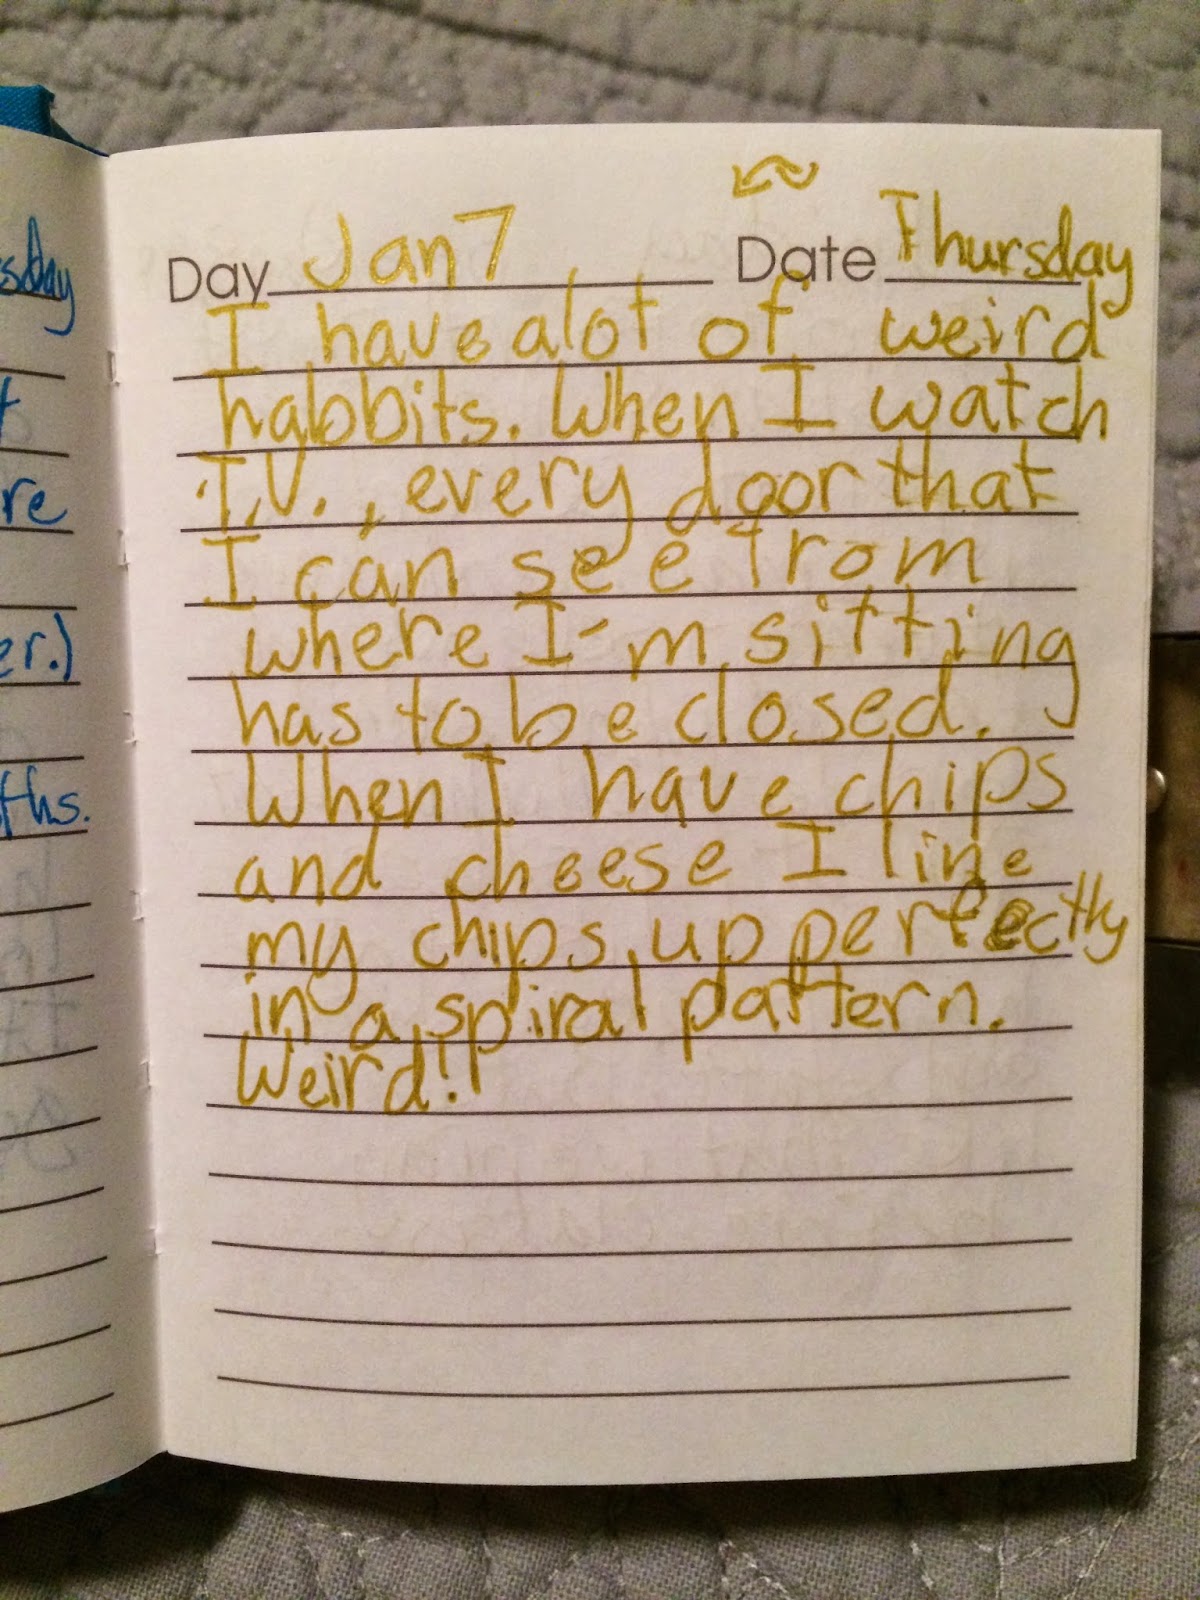 sday
t
re
er.)
ths.
Day Jan 7 Date Thursday
I have alot of weird
habbits. When I watch
T.V., every door that
I can see from
where I'm sitting
has to be closed.
When I have chips
and cheese I line
my chips up perfectly
in a spiral pattern.
Weird!